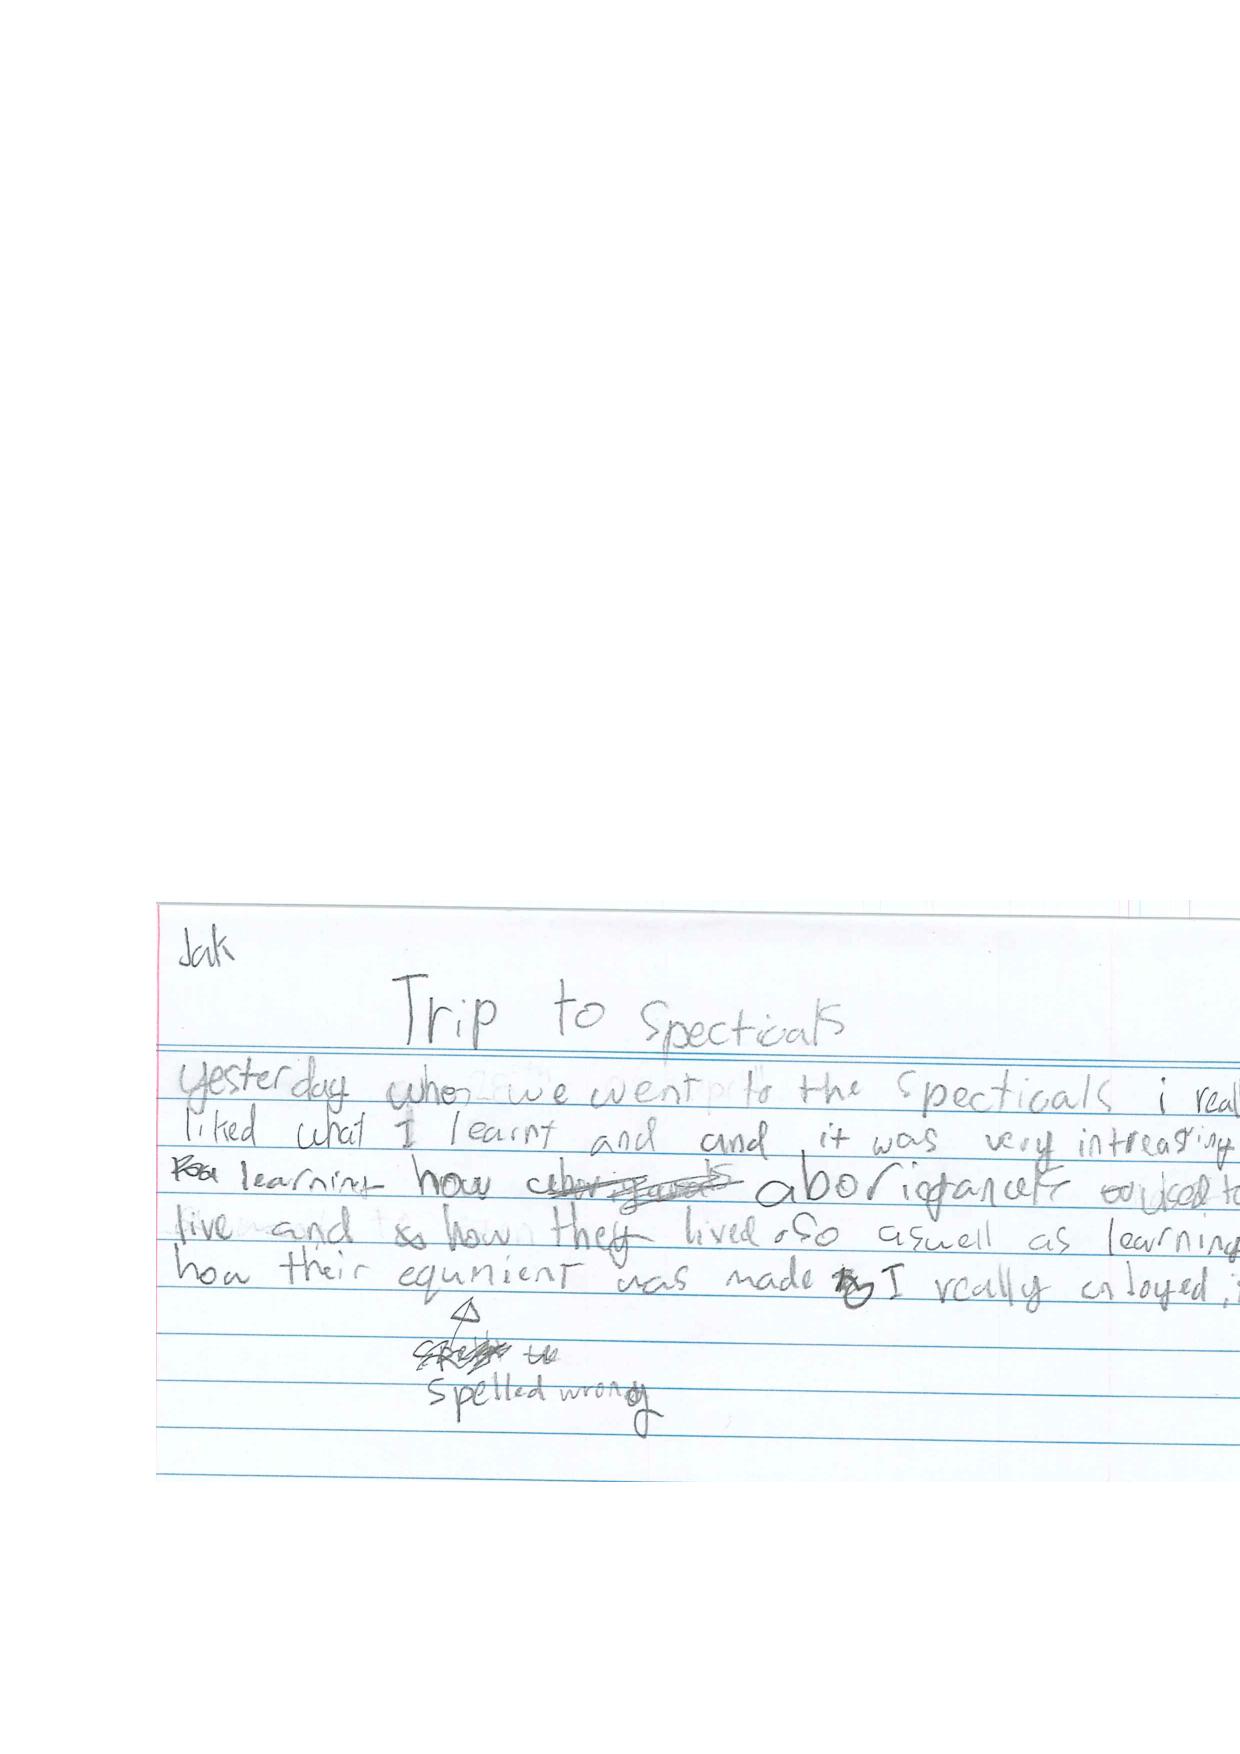 Jak
Trip to specticals
yesterday when we went to the specticals i real
liked what I learnt and and it was very intreasting
learning how aborigancls used to
live and how they lived so aswell as learning
how their equmient was made I really enloyed it
spelled wrong